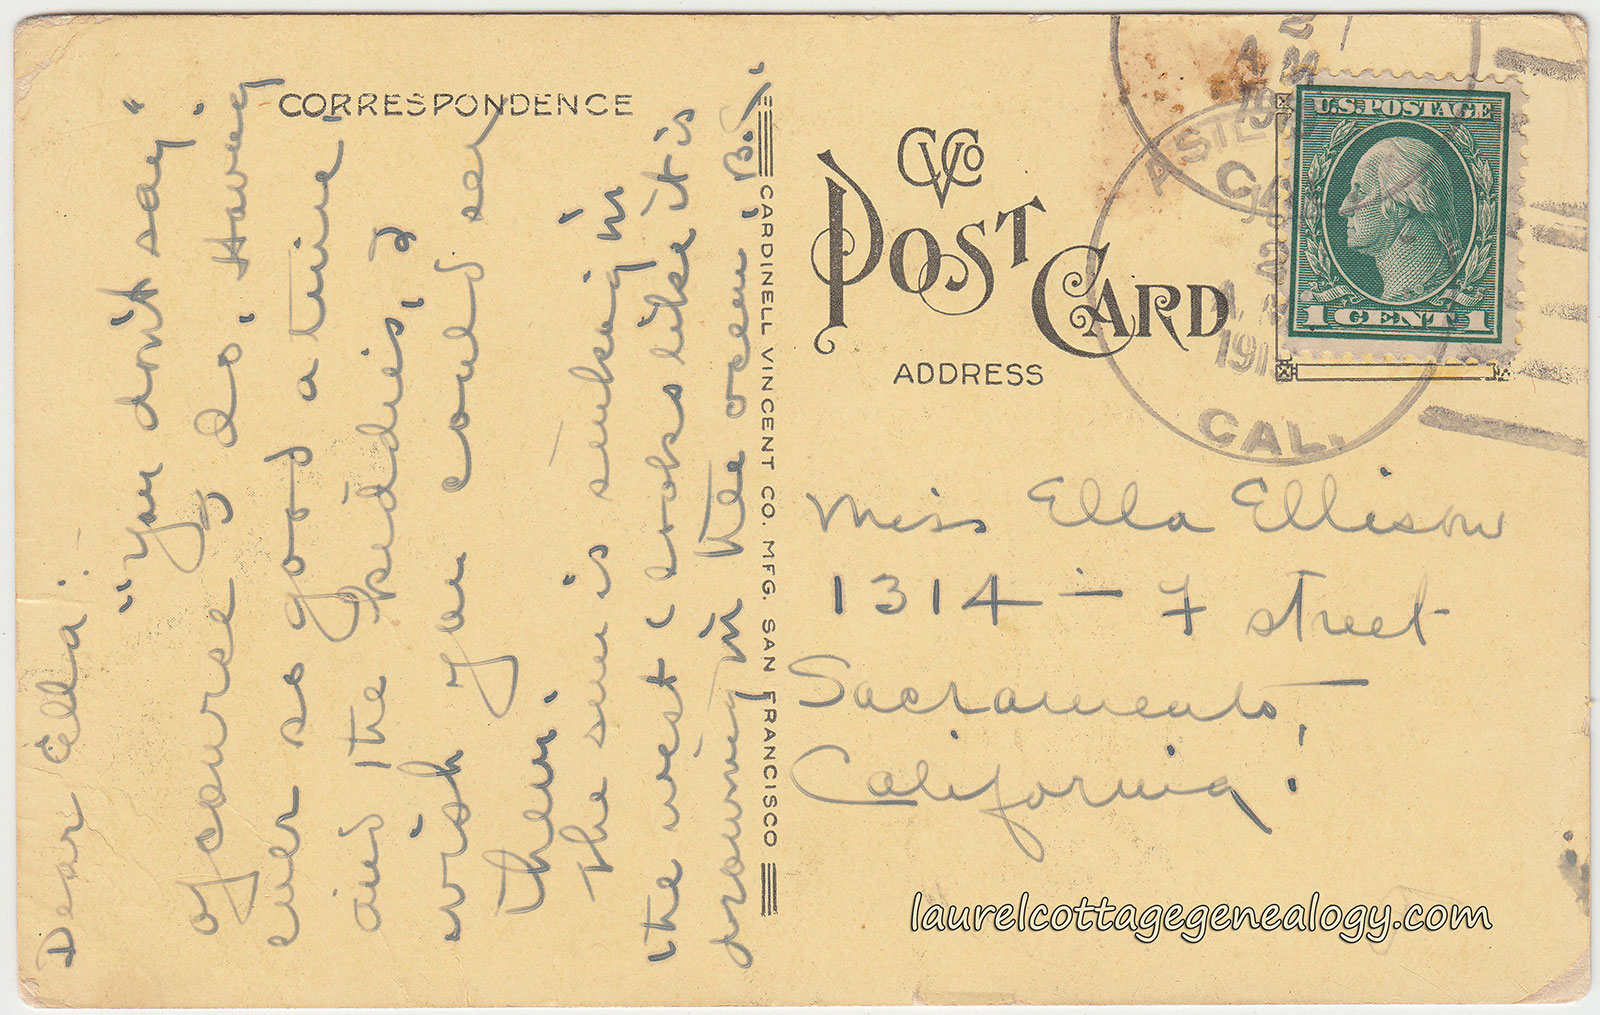 CORRESPONDENCE
Dear Ella:-
"You don't say".
Of course I do. Having
ever so good a time,
and the kiddies, I
wish you could see
them.
The sun is sinking in
the west & looks like it is
drowning in the ocean. B.J.
CARDINELL VINCENT CO. MFG. SAN FRANCISCO
CVCo
POST CARD
ADDRESS
U.S. POSTAGE
1 CENT 1
CAL.
Miss Ella Ellison
1314 - F street
Sacramento,
California.
laurelcottagegenealogy.com